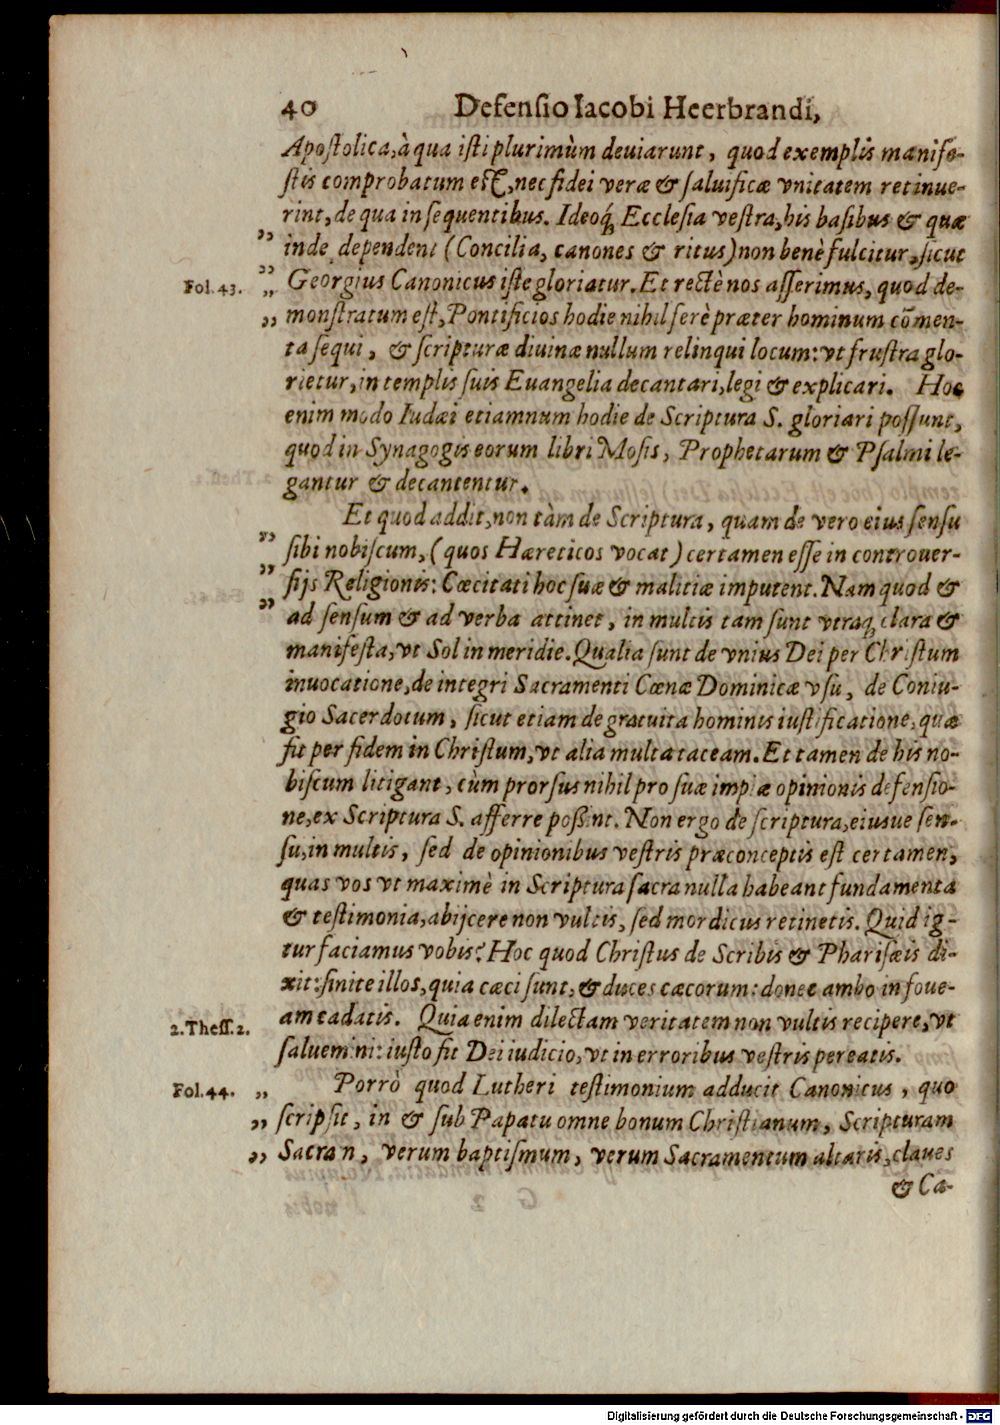 40 Defensio Iacobi Heerbrandi,
Apostolica, à qua isti plurimùm deuiarunt, quod exemplis manife-
stis comprobatum est, nec fidei veræ & saluificæ vnitatem retinue-
rint, de qua in sequentibus. Ideoq́; Ecclesia vestra, his basibus & quæ
„ inde dependent (Concilia, canones & ritus) non benè fulcitur, sicut
Fol. 43. „ „ Georgius Canonicus iste gloriatur. Et rectè nos asserimus, quod de-
„ monstratum est, Pontificios hodie nihil ferè præter hominum cōmen-
ta sequi, & scripturæ diuinæ nullum relinqui locum: vt frustra glo-
rietur, in templis suis Euangelia decantari, legi & explicari. Hoc
enim modo Iudæi etiamnum hodie de Scriptura S. gloriari possunt,
quod in Synagogis eorum libri Mosis, Prophetarum & Psalmi le-
gantur & decantentur.
Et quod addit, non tàm de Scriptura, quam de vero eius sensu
„ sibi nobiscum, (quos Hæreticos vocat) certamen esse in controuer-
„ sijs Religionis: Cæcitati hoc suæ & malitiæ imputent. Nam quod &
„ ad sensum & ad verba attinet, in multis tam sunt vtraq; clara &
manifesta, vt Sol in meridie. Qualia sunt de vnius Dei per Christum
inuocatione, de integri Sacramenti Cœnæ Dominicæ vsu, de Coniu-
gio Sacerdotum, sicut etiam de gratuita hominis iustificatione, quæ
fit per fidem in Christum, vt alia multa taceam. Et tamen de his no-
biscum litigant, cùm prorsus nihil pro suæ impiæ opinionis defensio-
ne, ex Scriptura S. afferre possint. Non ergo de scriptura, eiusue sen-
su, in multis, sed de opinionibus vestris præconceptis est certamen,
quas vos vt maximè in Scriptura sacra nulla habeant fundamenta
& testimonia, abijcere non vultis, sed mordicus retinetis. Quid ig-
tur faciamus vobis? Hoc quod Christus de Scribis & Pharisæis di-
xit: sinite illos, quia cæci sunt, & duces cæcorum: donec ambo in foue-
am cadatis. Quia enim dilectam veritatem non vultis recipere, vt
2. Thess. 2. saluemini: iusto fit Dei iudicio, vt in erroribus vestris pereatis.
Fol. 44. „ Porrò quod Lutheri testimonium adducit Canonicus, quo
„ scripsit, in & sub Papatu omne bonum Christianum, Scripturam
„ Sacram, verum baptismum, verum Sacramentum altaris, claues
& Ca-
Digitalisierung gefördert durch die Deutsche Forschungsgemeinschaft - DFG